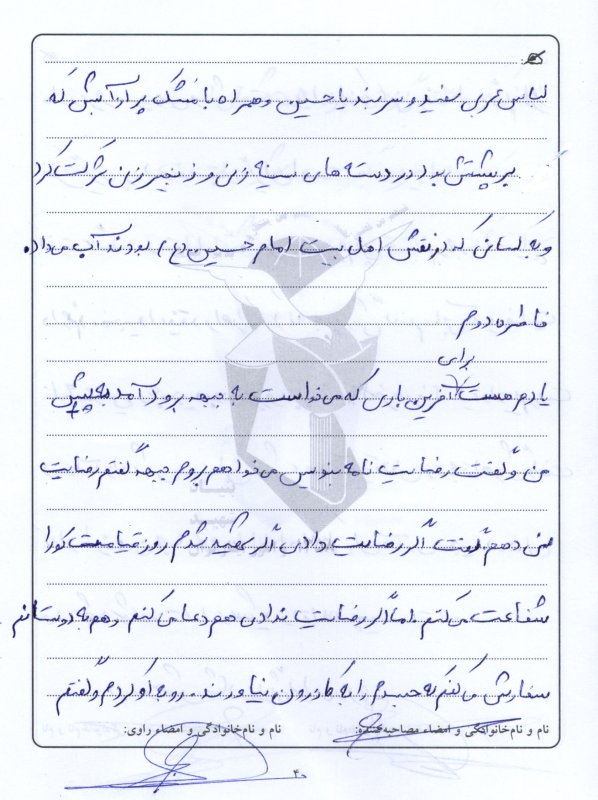 لباس عربی سفید و سربند یا حسین و همراه با مشک پر از آبش که
بر پشتش بود در دسته های سینه زنی و زنجیرزنی شرکت کرد
و به کسانی که در نقش اهل بیت امام حسین (ع) بودند آب می داد.
خاطره دوم
برای
یادم هست آخرین باری که می خواست به جبهه برود آمد به پیش
من و گفت رضایت نامه بنویس می خواهم بروم جبهه گفتم رضایت
نمی دهم گفت اگر رضایت دادی اگر شهید شدم روز قیامت تو را
شفاعت می کنم. اما اگر رضایت ندادی هم دعا می کنم و هم به دوستانم
سفارش می کنم که جسدم را به کازرون نیاورند. رو به او کردم و گفتم
نام و نام‌خانوادگی و امضاء مصاحبه‌کننده: نام و نام‌خانوادگی و امضاء راوی: